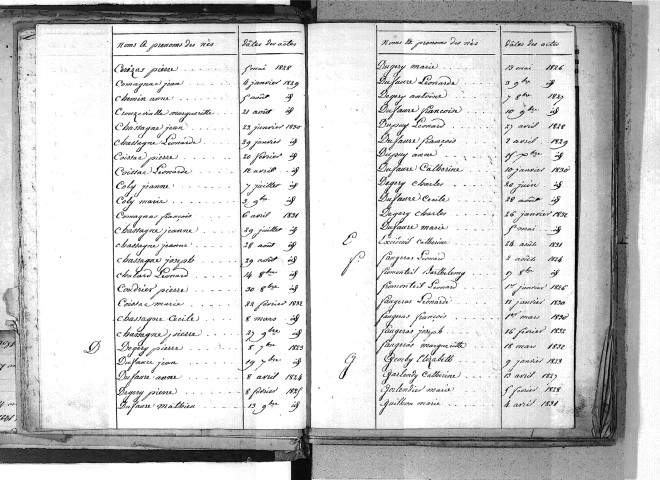 noms & prenoms des nés dates des actes
Cerézas pierre 5 mai 1828
Comagnac jean 4 janvier 1829
Chemin anne 5 aout id
Crouzeville margueritte 21 aout id
Chassagne jean 23 janvier 1830
Chassagne Léonarde 29 janvier id
Coissac pierre 20 février id
Coissac Léonarde 12 avril id
Coly jeanne 7 juillet id
Coly marie 2 9bre id
Comagnac françois 6 avril 1831
Chassagne jeanne 29 juillet id
Chassagne jeanne 28 aout id
Chassagne joseph 29 aout id
Chatard Léonard 14 8bre id
Coudrier pierre 30 8bre id
Coissac marie 22 février 1832
Chassagne Cécile 8 mars id
Chassagne pierre 27 9bre id
D Degery pierre 8 7bre 1823
Dufaure jean 19 7bre id
Dufaure anne 8 avril 1824
Degery pierre 8 février 1825
Dufaure Mathieu 13 9bre id
noms & prenoms des nés dates des actes
Dugery marie 13 mai 1826
Dufaure Léonarde 2 9bre id
Degery antoine 7 8bre 1827
Dufaure françoise 11 9bre id
Dupuy Léonard 27 avril 1828
Dufaure françois 2 avril 1829
Dupuy anne 15 7bre id
Dufaure Catherine 10 janvier 1830
Degery charles 20 juin id
Dufaure Cecile 28 aout id
Degery charles 26 janvier 1832
Dufaure marie 5 mai id
E Excideuil Catherine 24 août 1831
F faugeras Léonard 2 août 1824
fromenteil Barthelemy 19 8bre id
fromenteil Léonard 1er janvier 1826
faugeras Léonarde 11 janvier 1830
faugeras françois 1er mars 1830
faugeras joseph 16 février 1832
faugeras margueritte 18 mars 1832
G Gemby Elizabeth 9 janvier 1823
Garlendy Catherine 13 avril 1827
Gorlendier marie 5 février 1828
Guillon marie 4 avril 1831